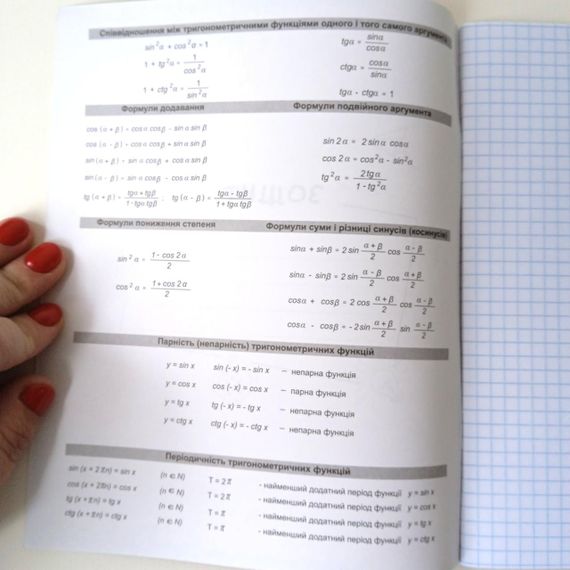 Співвідношення між тригонометричними функціями одного і того самого аргумента
sin²α + cos²α = 1
1 + tg²α = 1/cos²α
1 + ctg²α = 1/sin²α
tgα = sinα/cosα
ctgα = cosα/sinα
tgα · ctgα = 1
Формули додавання
cos (α + β) = cosα cosβ - sin α sin β
cos (α - β) = cosα cosβ + sin α sin β
sin (α + β) = sin α cosβ + cosα sin β
sin (α - β) = sin α cosβ - cosα sin β
tg (α + β) = tgα + tgβ/1 - tgα tgβ , tg (α - β) = tgα - tgβ/1 + tgα tgβ
Формули подвійного аргумента
sin 2α = 2 sinα cosα
cos 2α = cos²α - sin²α
tg²α = 2 tgα/1 - tg²α
Формули пониження степеня
sin²α = 1 - cos 2α/2
cos²α = 1 + cos 2α/2
Формули суми і різниці синусів (косинусів)
sinα + sinβ = 2 sin α + β/2 cos α - β/2
sinα - sinβ = 2 sin α - β/2 cos α + β/2
cosα + cosβ = 2 cos α + β/2 cos α - β/2
cosα - cosβ = - 2 sin α + β/2 sin α - β/2
Парність (непарність) тригонометричних функцій
y = sin x sin (- x) = - sin x – непарна функція
y = cos x cos (- x) = cos x – парна функція
y = tg x tg (- x) = - tg x – непарна функція
y = ctg x ctg (- x) = - ctg x – непарна функція
Періодичність тригонометричних функцій
sin (x + 2πn) = sin x (n ∈ N) T = 2π - найменший додатний період функції y = sin x
cos (x + 2πn) = cos x (n ∈ N) T = 2π - найменший додатний період функції y = cos x
tg (x + πn) = tg x (n ∈ N) T = π - найменший додатний період функції y = tg x
ctg (x + πn) = ctg x (n ∈ N) T = π - найменший додатний період функції y = ctg x